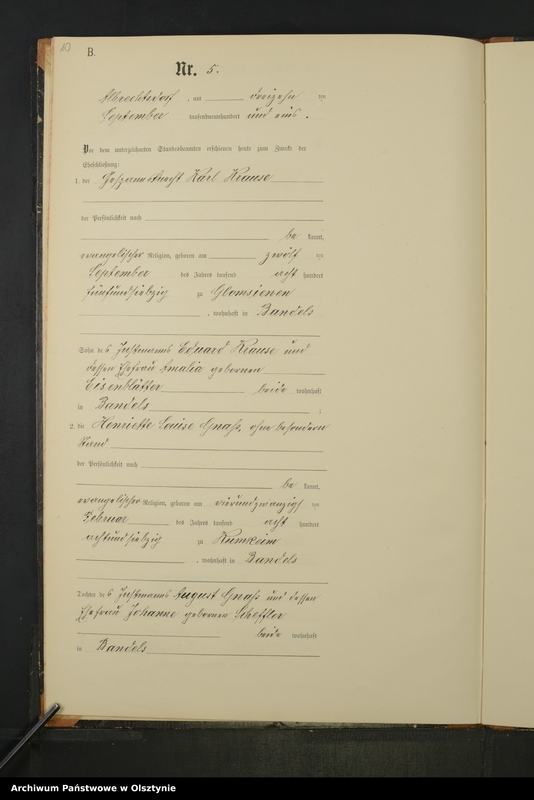 10
B.
Nr. 5.
Albrechtsdorf, am dreizehn ten
September tausendneunhundert und eins.
Vor dem unterzeichneten Standesbeamten erschienen heute zum Zwecke der
Eheschließung:
1. der Karl Krause
der Persönlichkeit nach
be kannt,
evangelischer Religion, geboren am zwölf ten
September des Jahres tausend acht hundert
fünfundsiebzig zu Glomsienen
, wohnhaft in Bandels
Sohn des Instmanns Eduard Krause und
dessen Ehefrau Amalia geborenen
Eisenblätter beide wohnhaft
in Bandels ;
2. die Henriette Louise Gnass, ohne besondern
Stand
der Persönlichkeit nach
be kannt,
evangelischer Religion, geboren am vierundzwanzigs ten
Februar des Jahres tausend acht hundert
achtundsiebzig zu Kumkeim
, wohnhaft in Bandels
Tochter des Instmanns August Gnass und dessen
Ehefrau Johanne geborenen Scheffler
beide wohnhaft
in Bandels
Archiwum Państwowe w Olsztynie